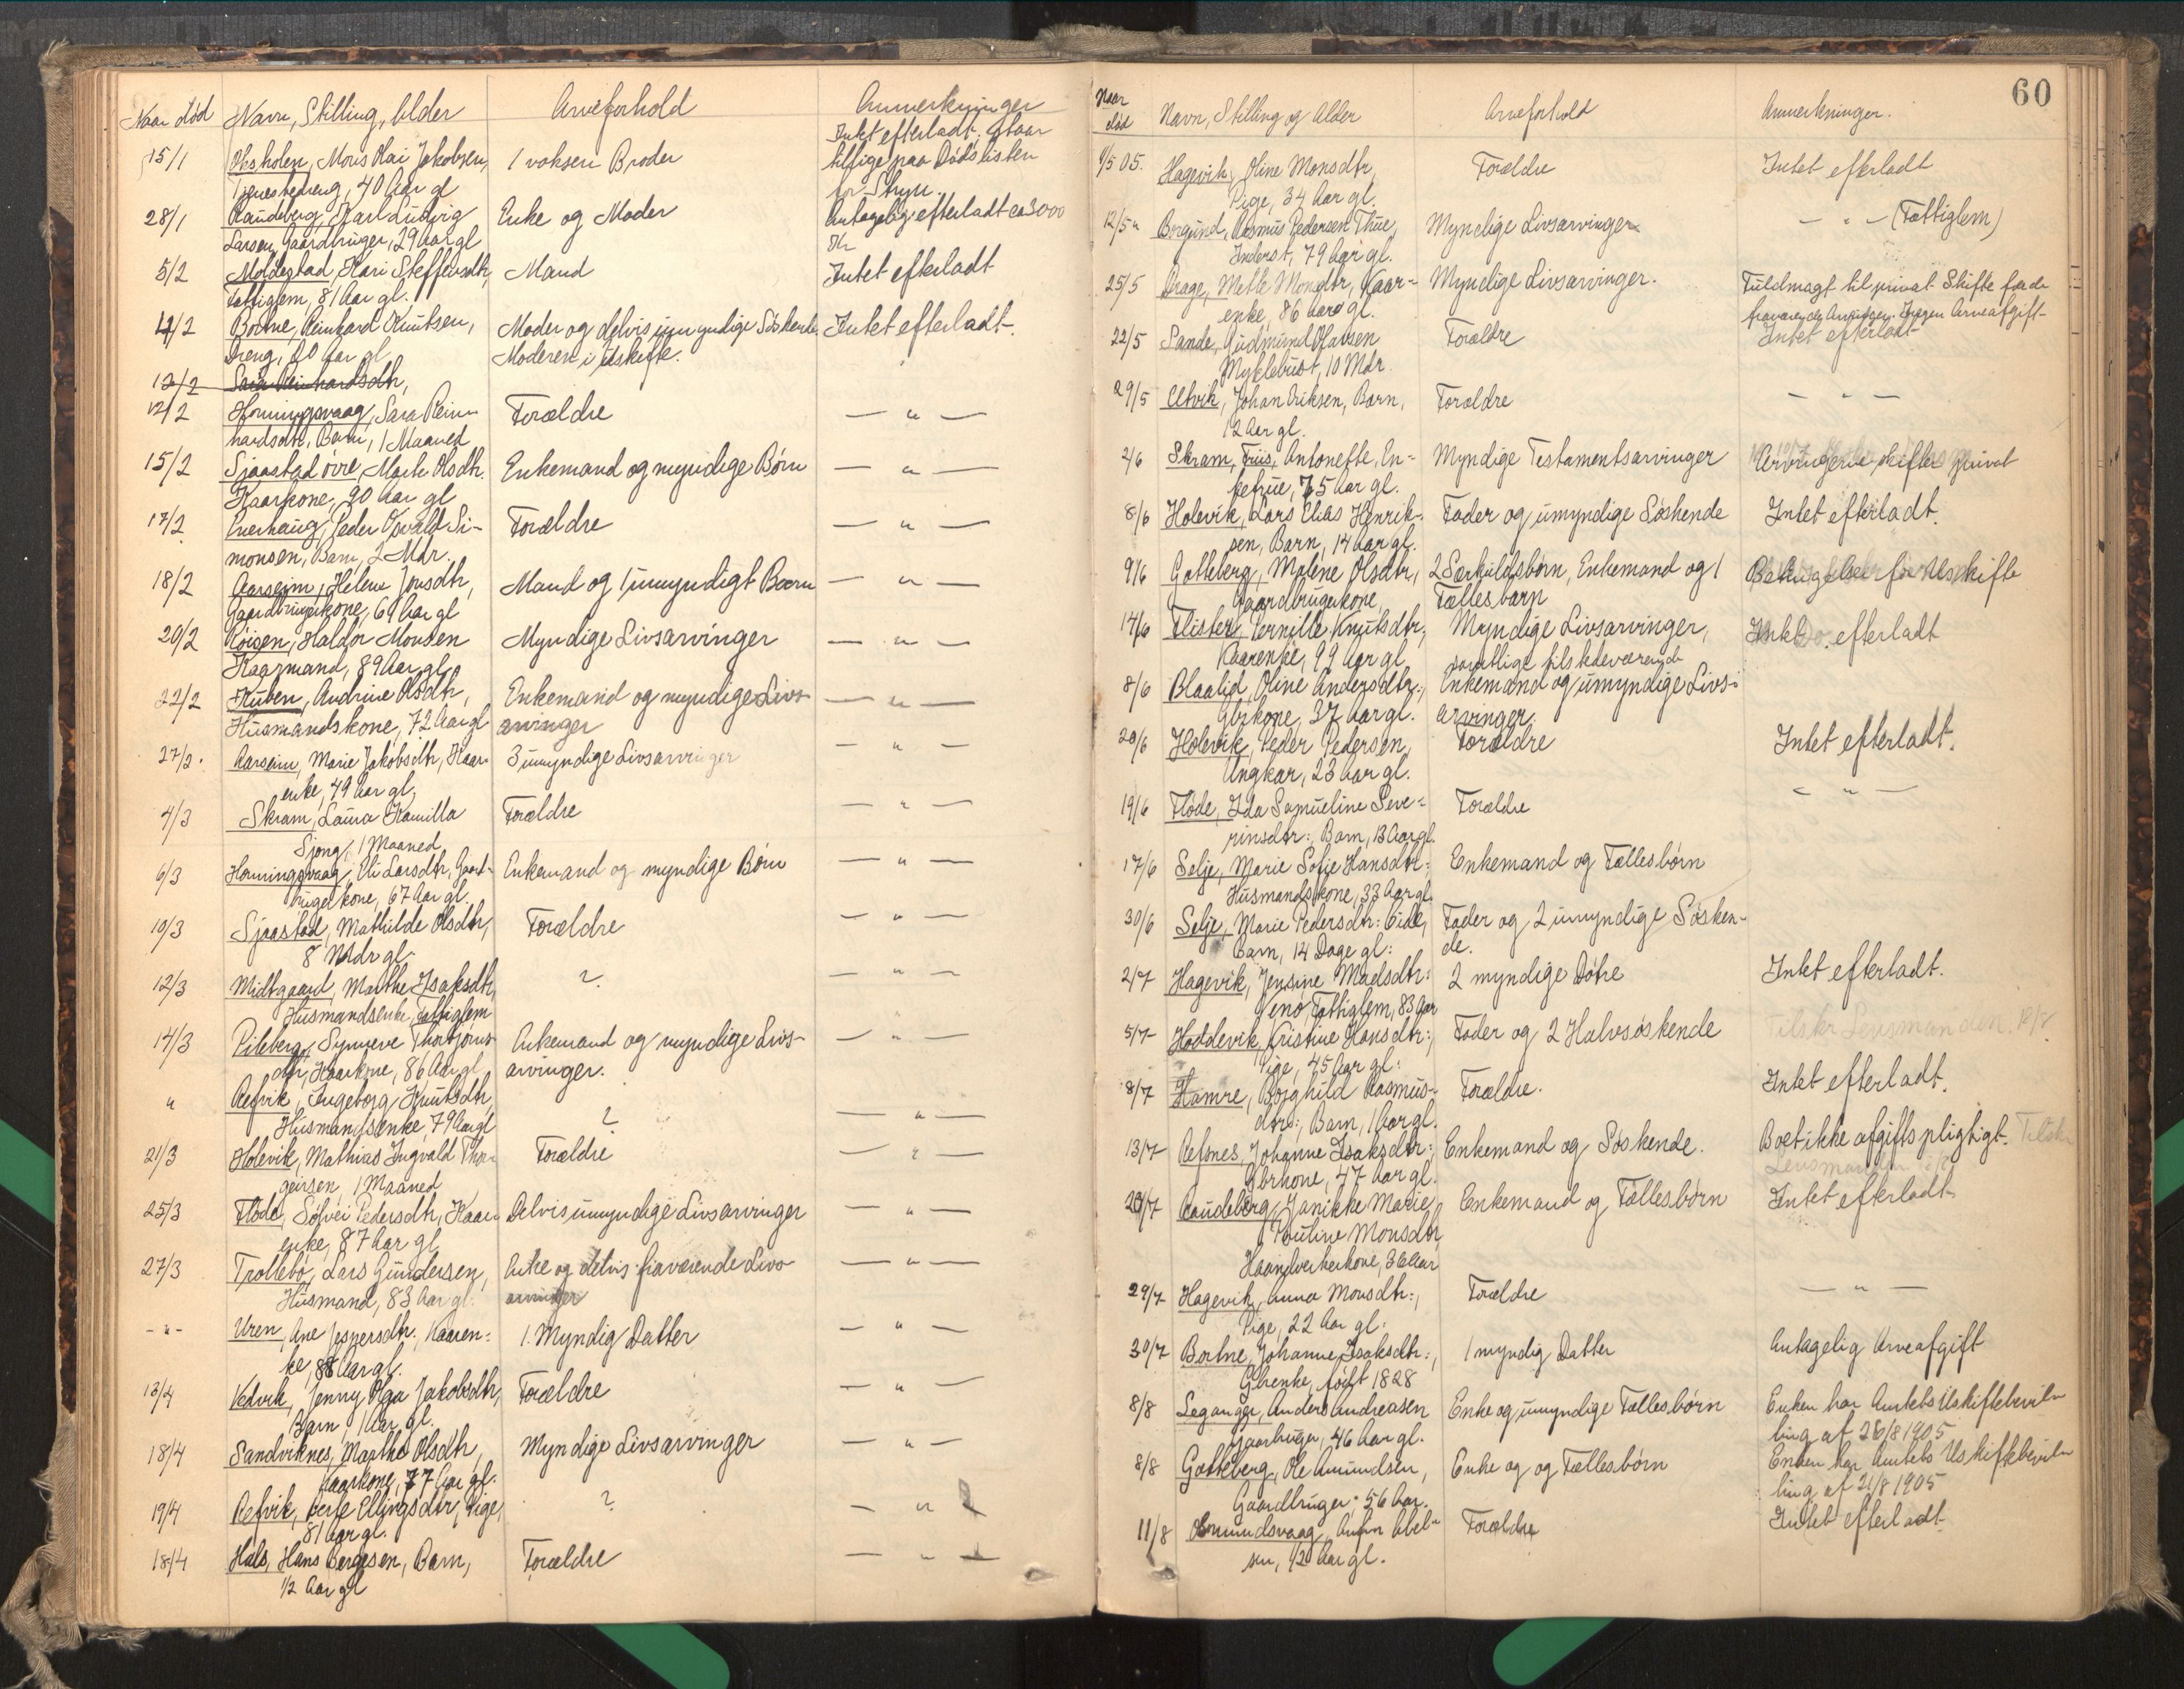 Naar død Navn, Stilling, Alder Arveforhold Anmerkninger
15/1 Mons Olai Jakobsen, 1 voksen Broder Intet efterladt. Staar
Tjenestedreng, 40 Aar gl tillige paa Dødslisten
for Stryn.
28/1 Raudeberg, Karl Ludvig Enke og Moder Antagelig efterladt ca 3000
Larsen, Gaardbruger, 29 Aar gl Kr
5/2 Moldestad, Kari Steffensdtr, Mand Intet efterladt
Fattiglem, 81 Aar gl.
4/2 Bortne, Reinhard Knutsen, Moder og delvis umyndige Søskende. Intet efterladt.
Dreng, 20 Aar gl Moderen i Uskifte.
12/2 Sara Reinhardsdtr,
12/2 Horningsvaag, Sara Rein- Forældre — " —
hardsdtr, Barn, 1 Maaned
15/2 Sjaastad øvre, Marte Olsdtr. Enkemand og myndige Børn — " —
Kaarkone, 90 Aar gl
17/2 Peder Osvald Si- Forældre — " —
monsen, Barn, 2 Mdr.
18/2 Aarseim, Helene Jonsdtr, Mand og 1 umyndigt Barn — " —
Gaardbrugerkone, 69 Aar gl
20/2 Røisen, Haldor Monsen Myndige Livsarvinger — " —
Kaarmand, 89 Aar gl
22/2 Kuben, Andrine Olsdtr, Enkemand og myndige Livs- — " —
Husmandskone, 72 Aar gl arvinger
27/2. Aarseim, Marie Jakobsdtr, Kaar- 3 umyndige Livsarvinger — " —
enke, 49 Aar gl.
4/3 Skram, Laura Kamilla Forældre — " —
Sjong, 1 Maaned
6/3 Horningsvaag, Eli Larsdtr, Gaard- Enkemand og myndige Børn — " —
brugerkone, 67 Aar gl.
10/3 Sjaastad, Mathilde Olsdtr, Forældre — " —
8 Mdr gl.
12/3 Midtgaard, Marthe Isaksdtr, ? — " —
Husmandsenke, Fattiglem
14/3 Pileberg, Synneve Thorbjørns- Enkemand og myndige Livs- — " —
dtr, Kaarkone, 86 Aar gl arvinger.
" Refvik, Ingeborg Knutsdtr, ? — " —
Husmandsenke, 79 Aar gl
21/3 Holevik, Mathias Ingvald Thor- Forældre — " —
geirsen, 1 Maaned
25/3 Fløde, Sølvei Pedersdtr, Kaar- Delvis umyndige Livsarvinger — " —
enke, 87 Aar gl
27/3 Trollebø, Lars Gundersen, Enke og delvis fraværende Livs- — " —
Husmand, 83 Aar gl. arvinger
- " - Uren, Ane Jespersdtr. Kaaren- 1. Myndig Datter — " —
ke, 88 Aar gl.
13/4 Vedvik, Jenny Olga Jakobsdtr, Forældre — " —
Barn, 1 Aar gl.
18/4 Sandviknes, Marthe Olsdtr, Myndige Livsarvinger — " —
Kaarkone, 77 Aar gl.
19/4 Refvik, Berte Ellingsdtr, Pige, ? — " —
81 Aar gl.
18/4 Hals, Hans Børgesen, Barn, Forældre — " —
1/2 Aar gl
60
Naar død Navn, Stilling og Alder Arveforhold Anmerkninger.
9/5 05. Hagevik, Oline Monsdtr, Forældre Intet efterladt
Pige, 34 Aar gl.
12/5 " Borgund, Rasmus Pedersen Thue, Myndige Livsarvinger — " — (Fattiglem)
Inderst, 79 Aar gl.
25/5 Drage, Mette Monsdtr, Kaar- Myndige Livsarvinger. Fuldmagt til privat Skifte for de
enke, 86 Aar gl. fraværende Arvinger. Ingen Arveafgift
22/5 Sande, Gudmund Olausen Forældre Intet efterladt
Myklebust, 10 Mdr.
29/5 Elvik, Johan Eriksen, Barn, Forældre — " —
12 Aar gl.
2/6 Skram, Friis, Antonette, En- Myndige Testamentsarvinger Arvingerne skifter privat
kefrue, 75 Aar gl.
8/6 Holevik, Lars Elias Henrik- Fader og umyndige Søskende Intet efterladt.
sen, Barn, 14 Aar gl.
9/6 Gotteberg, Malene Olsdtr, 2 Særkuldsbørn, Enkemand og 1 Betingelser for Uskifte
Gaardbrugerkone, Fællesbarn
14/6 Flister, Pernille Knutsdtr, Myndige Livsarvinger, Intet efterladt
Kaarenke, 99 Aar gl samtlige tilstedeværende
8/6 Blaalid, Oline Andersdtr., Enkemand og umyndige Livs-
Gbrkone, 37 Aar gl. arvinger.
20/6 Holevik, Peder Pedersen, Forældre Intet efterladt.
Ungkar, 23 Aar gl.
19/6 Fløde, Ida Samueline Seve- Forældre — " —
rinsdtr: Barn, 13 Aar gl.
17/6 Selje, Marie Sofie Hansdtr: Enkemand og Fællesbørn
Husmandskone, 33 Aar gl.
30/6 Selje, Marie Pedersdtr: Eide, Fader og 2 umyndige Søsken-
Barn, 14 Dage gl: de.
2/7 Hagevik, Jensine Madsdtr: 2 myndige Døtre Intet efterladt.
Fattiglem, 83 Aar
5/7 Hoddevik, Kristine Hansdtr:, Fader og 2 Halvsøskende Lensmanden
Pige, 45 Aar gl:
8/7 Hamre, Borghild Rasmus- Forældre. Intet efterladt.
dtr:, Barn, 1 Aar gl.
13/7 Refsnes, Johanne Isaksdtr:, Enkemand og Søskende. Boet ikke afgiftspligtigt.
Gbrkone, 47 Aar gl. Lensmanden
24/7 Raudeberg, Janikke Marie Enkemand og Fællesbørn Intet efterladt
Pauline Monsdtr,
Haandverkerkone, 36 Aar
29/7 Hagevik, Anna Monsdtr:, Forældre — " —
Pige, 22 Aar gl.
30/7 Bortne, Johanne Isaksdtr:, 1 myndig Datter Antagelig Arveafgift
Gbrenke, født 1828
8/8 Leganger, Anders Andreasen Enke og umyndige Fællesbørn Enken har Amtets Uskiftebevil-
Gaarbruger, 46 Aar gl. ling af 26/8 1905
8/8 Gotteberg, Ole Amundsen, Enke og og Fællesbørn Enken har Amtets Uskiftebevil-
Gaardbruger, 56 Aar. ling af 21/8 1905
11/8 Osmundsvaag, Abel- Forældre Intet efterladt
sen, 1/2 Aar gl.